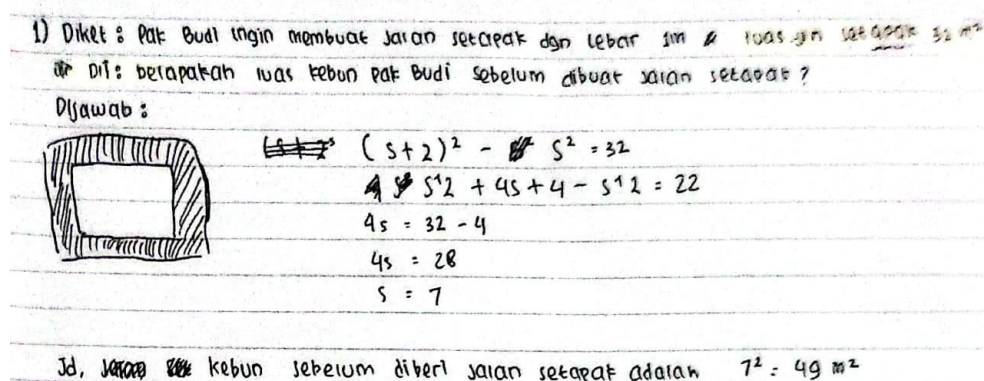 1) Diket : Pak Budi ingin membuat jalan setapak dgn lebar 1m & luas jln setapak 32 m²
Dit : berapakah luas kebun pak Budi sebelum dibuat jalan setapak ?
Dijawab :
(s+2)² - s² = 32
s^2 + 4s + 4 - s^2 = 22
4s = 32 - 4
4s = 28
s = 7
Jd, kebun sebelum diberi jalan setapak adalah 7² = 49 m²